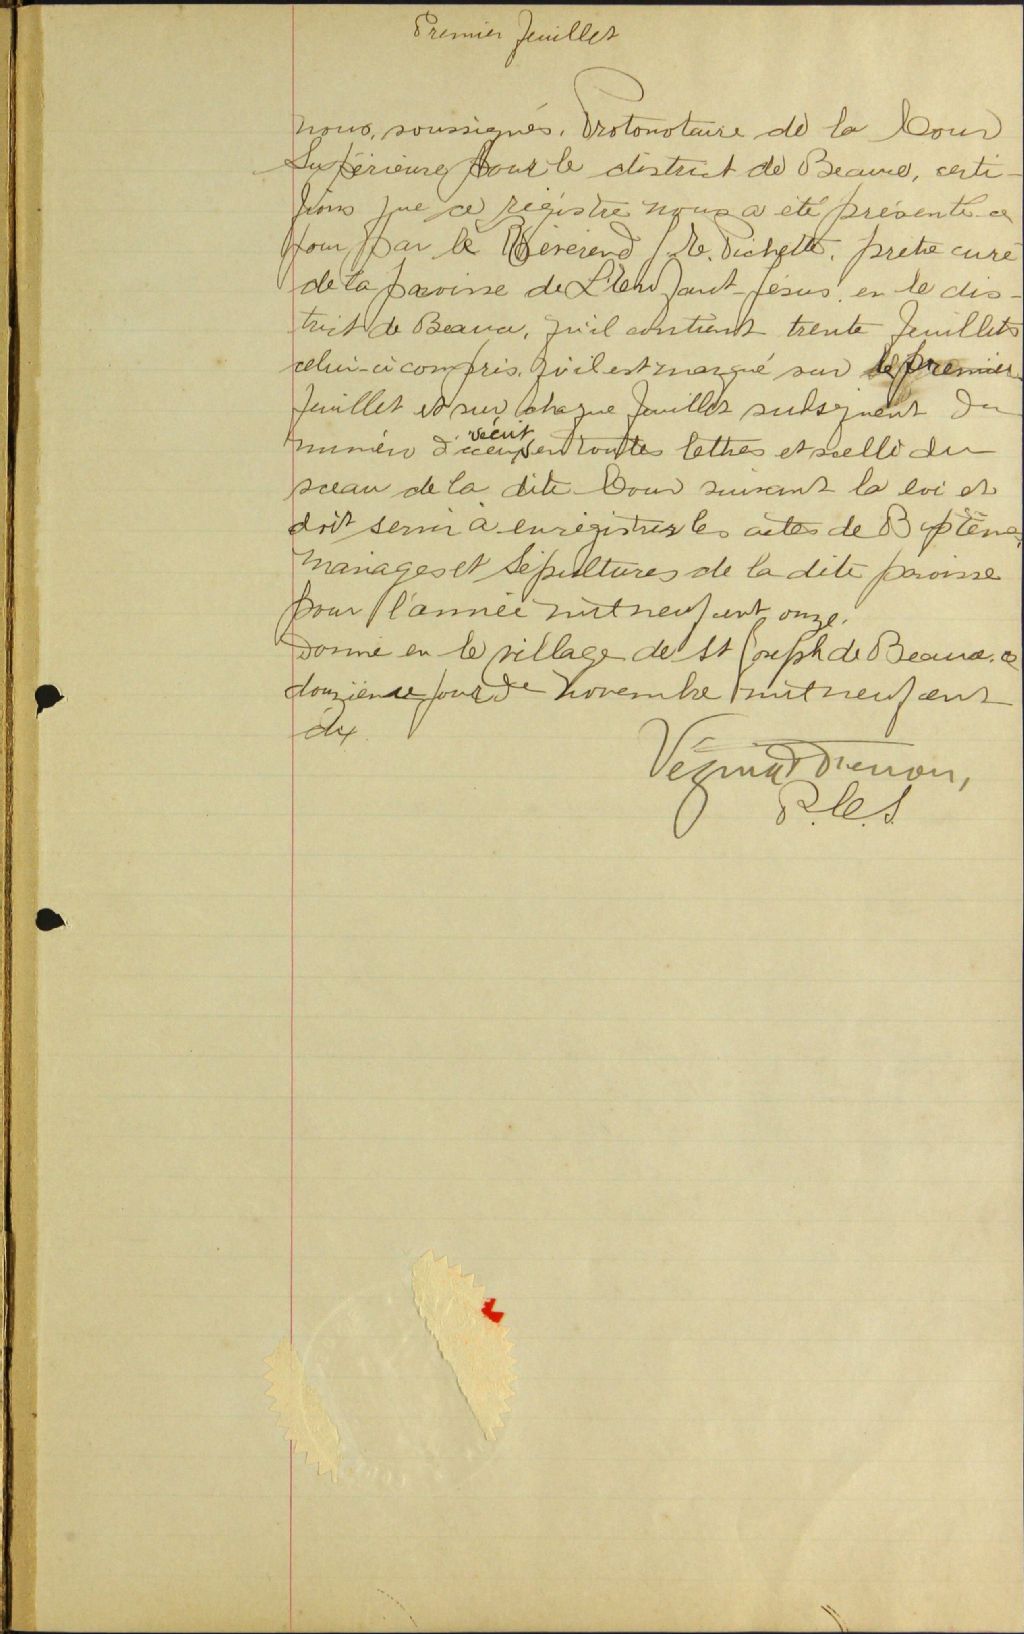 Premier feuillet
Nous, soussignés, Protonotaire de la Cour
Supérieure pour le district de Beauce, certi-
fions que ce régistre nous a été présenté ce
jour par le Révérend J. E. Pichette, prêtre curé
de la paroisse de L'Enfant-Jésus, en le dis-
trict de Beauce, qu'il contient trente feuillets
celui-ci compris, qu'il est marqué sur le premier
feuillet et sur chaque feuillet subséquent du
numéro d'icelui écrit en toutes lettres et scellé du
sceau de la dite Cour suivant la loi et
doit servir à enrégistrer les actes de Baptêmes,
Mariages et Sépultures de la dite paroisse
pour l'année mil neuf cent onze.
Donné en le village de St Joseph de Beauce, ce
douzième jour de novembre mil neuf cent
dix.
Vézina
P.C.S.